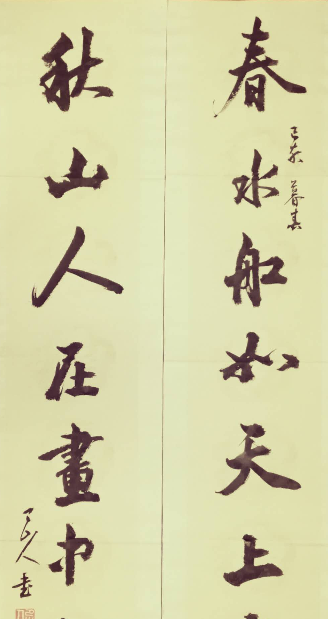 春水船如天上
暮春
秋山人在畫中
山人書